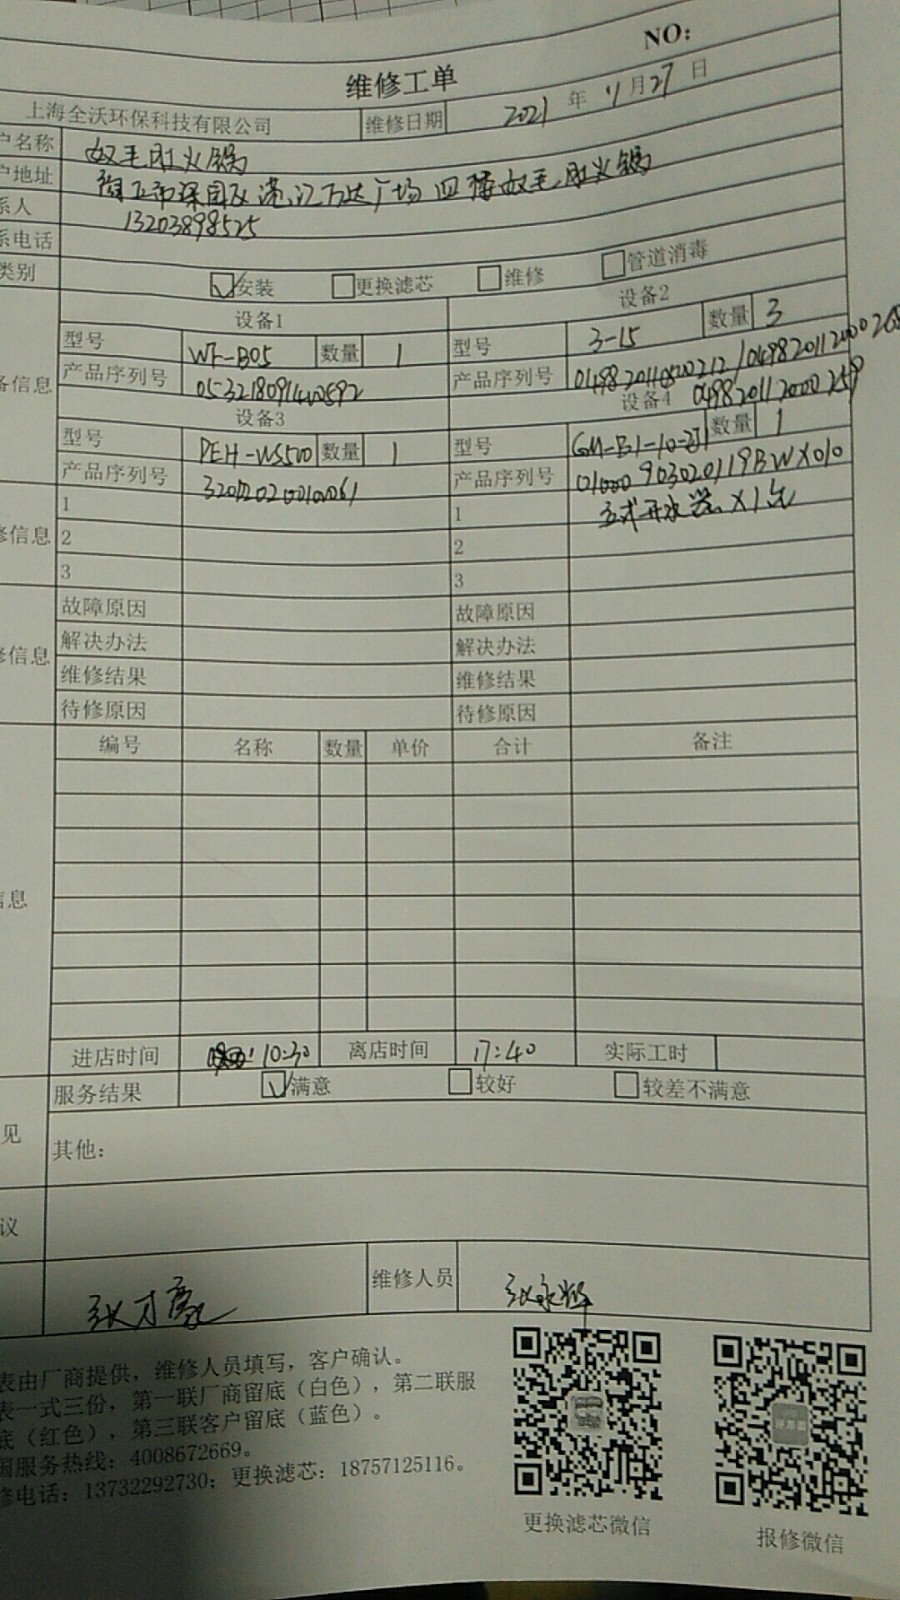 NO:
维修工单
上海全沃环保科技有限公司 维修日期 2021 年 11 月 27 日
户名称 奴毛肚火锅
户地址 万达广场 四楼奴毛肚火锅
系人 13203898525
系电话
类别 安装 更换滤芯 维修 管道消毒
设备1 设备2
型号 WF-B05 数量 1 型号 3-15 数量 3
备信息 产品序列号 产品序列号
设备3 设备4 0498201120002
型号 数量 1 型号 数量 1
产品序列号 产品序列号
1 1 立式开水器X1台
修信息 2 2
3 3
故障原因 故障原因
解决办法 解决办法
修信息 维修结果 维修结果
待修原因 待修原因
编号 名称 数量 单价 合计 备注
信息
进店时间 10:30 离店时间 17:40 实际工时
服务结果 满意 较好 较差不满意
见 其他：
议
维修人员 张永辉
表由厂商提供，维修人员填写，客户确认。
表一式三份，第一联厂商留底（白色），第二联服
底（红色），第三联客户留底（蓝色）。
国服务热线：4008672669。
修电话：13732292730；更换滤芯：18757125116。
更换滤芯微信 报修微信